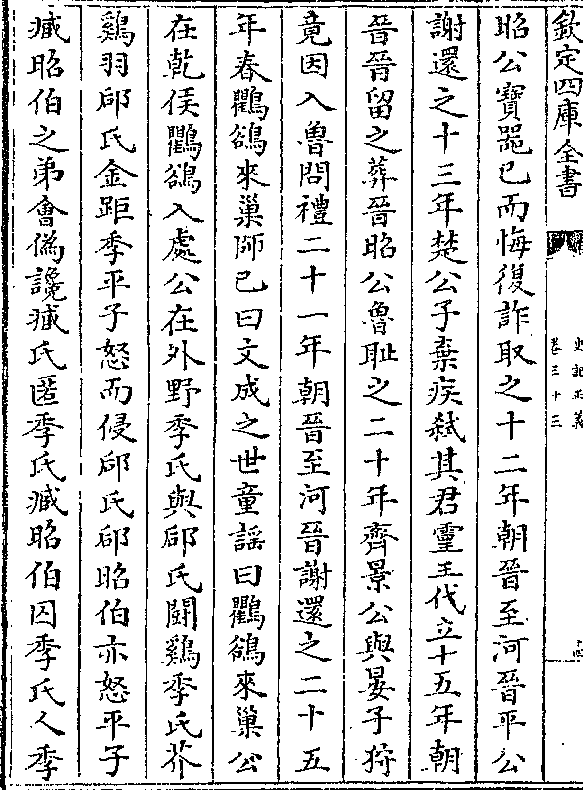 欽定四庫全書
史記正義
卷三十三
昭公寶器已而悔復詐取之十二年朝晉至河晉平公
謝還之十三年楚公子棄疾弑其君靈王代立十五年朝
晉晉留之葬晉昭公魯恥之二十年齊景公與晏子狩
竟因入魯問禮二十一年朝晉至河晉謝還之二十五
年春鸜鵒來巢師已曰文成之世童謠曰鸜鵒來巢公
在乾侯鸜鵒入處公在外野季氏與郈氏鬬鷄季氏芥
鷄羽郈氏金距季平子怒而侵郈氏郈昭伯亦怒平子
臧昭伯之弟會僞讒臧氏匿季氏臧昭伯囚季氏人季